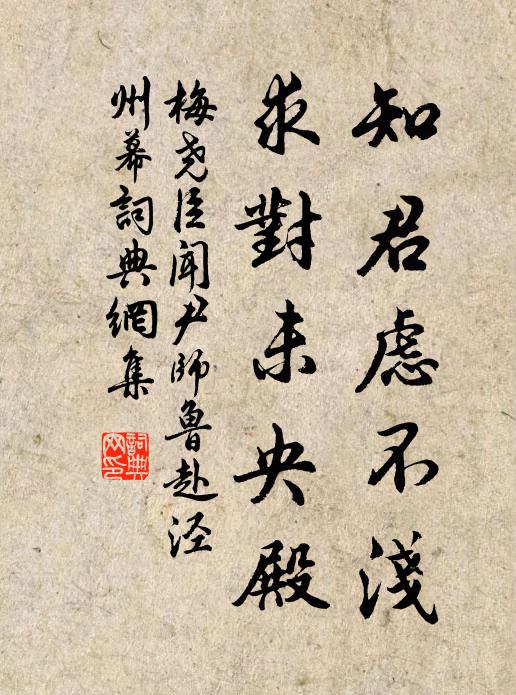 知君慮不淺
求對未央殿
梅尧臣闻尹師魯赴泾
州幕詞典網集
詞典
网印